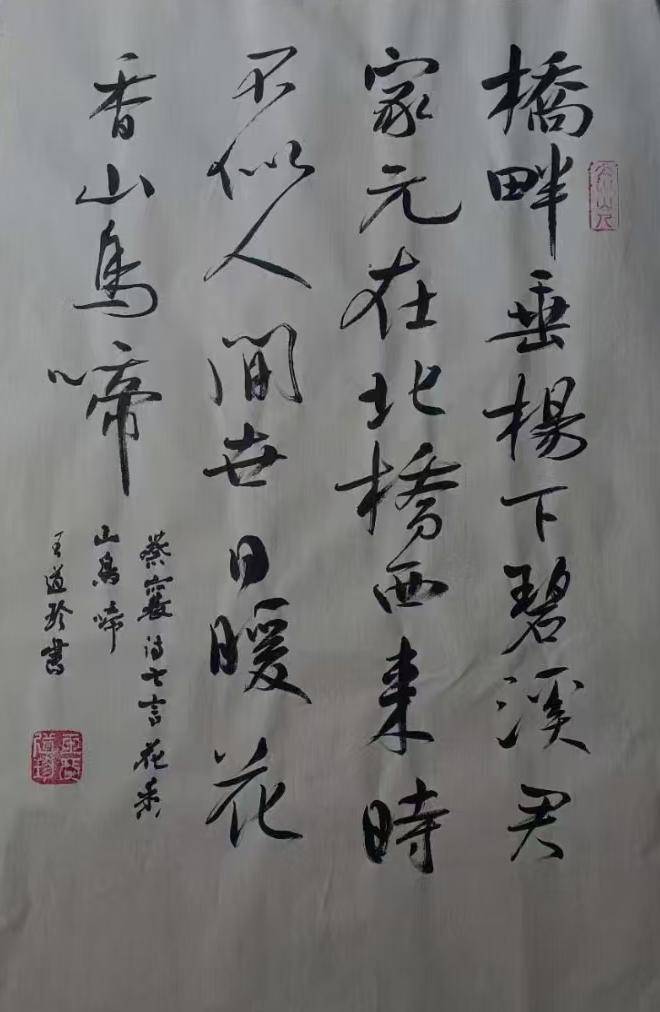 橋畔垂楊下碧溪君
家元在北橋西来時
不似人間世日暖花
香山鳥啼
蔡襄詩七言花香
山鳥啼
王道珍書